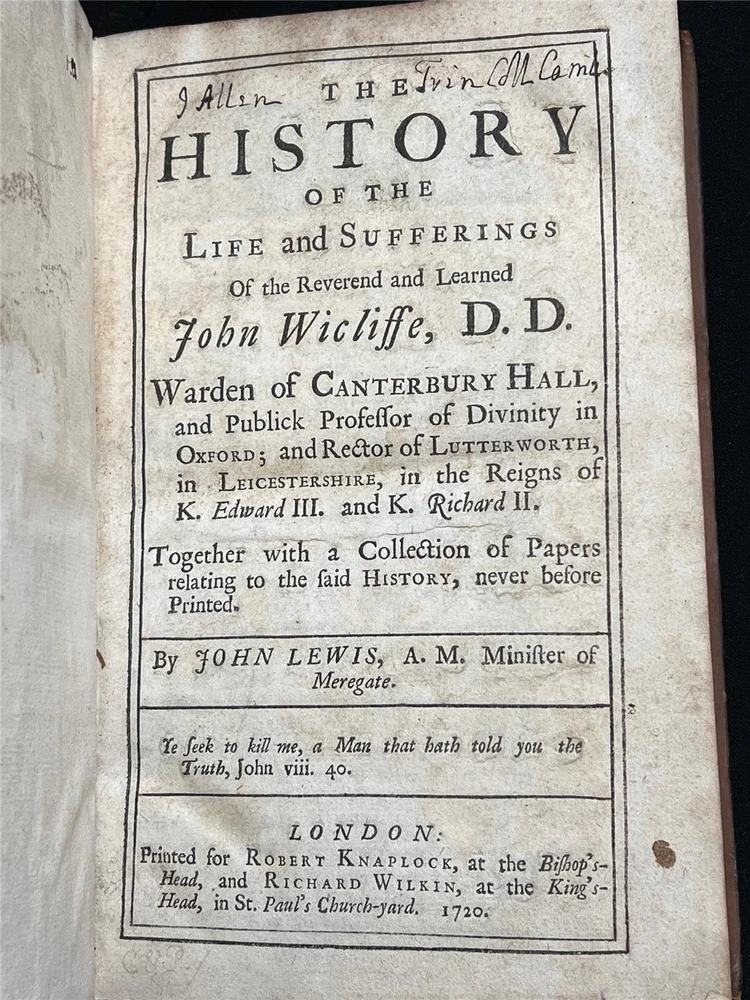 J Allen Trin Coll Camb.
THE
HISTORY
OF THE
LIFE and SUFFERINGS
Of the Reverend and Learned
John Wicliffe, D. D.
Warden of CANTERBURY HALL,
and Publick Profeſſor of Divinity in
OXFORD; and Rector of LUTTERWORTH,
in LEICESTERSHIRE, in the Reigns of
K. Edward III. and K. Richard II.
Together with a Collection of Papers
relating to the ſaid HISTORY, never before
Printed.
By JOHN LEWIS, A. M. Miniſter of
Meregate.
Ye ſeek to kill me, a Man that hath told you the
Truth, John viii. 40.
LONDON:
Printed for ROBERT KNAPLOCK, at the Biſhop's-
Head, and RICHARD WILKIN, at the King's-
Head, in St. Paul's Church-yard. 1720.